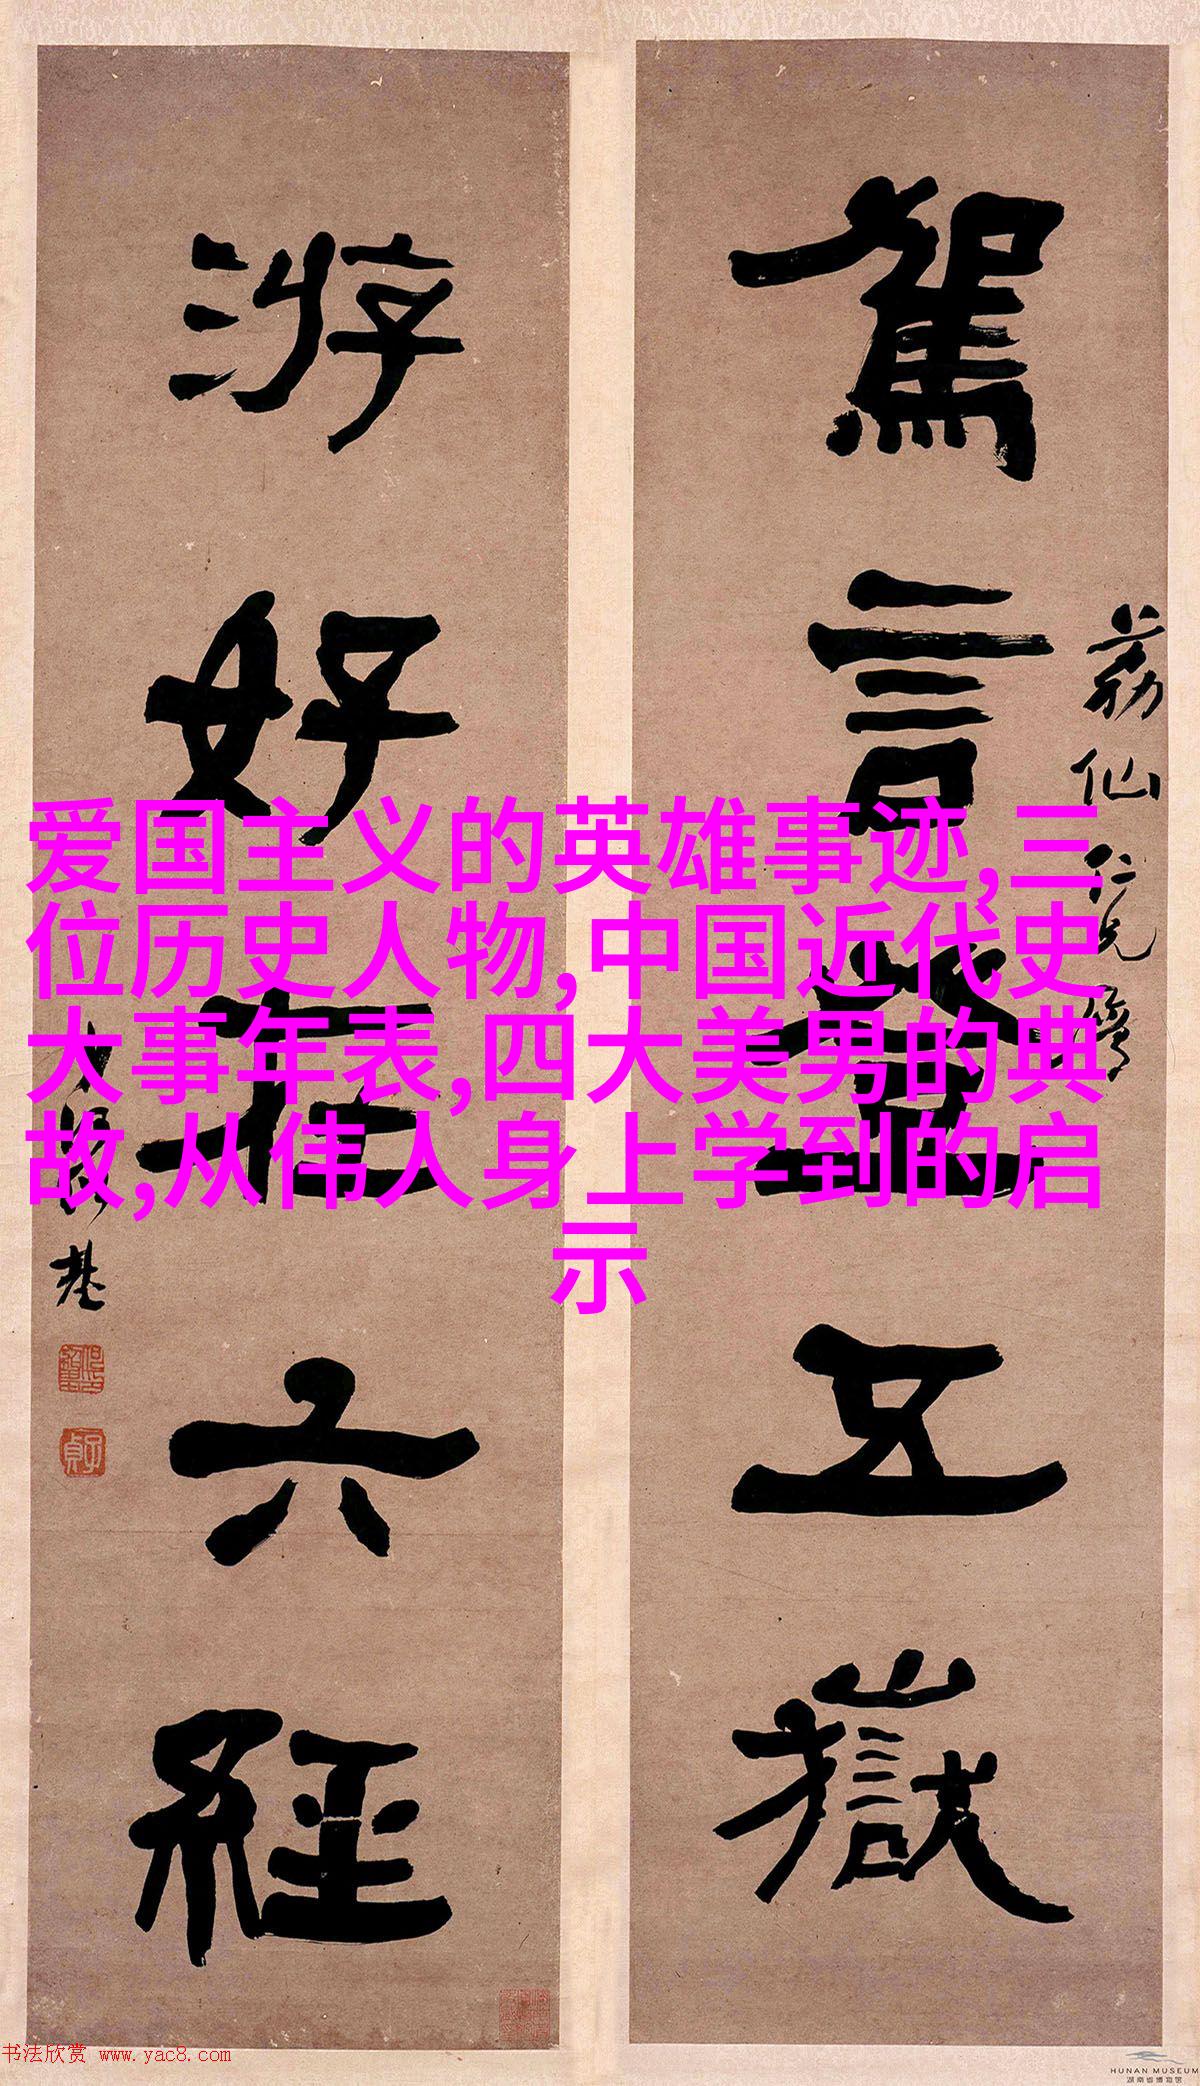 爱国主义的英雄事迹,三
位历史人物,中国近代史
大事年表,四大美男的典
故,从伟人身上学到的启
示
荔仙仁兄
駕言登五嶽
游好在六經
何紹基
子貞
书法欣赏 www.yac8.com
HUNAN MUSEUM
湖南省博物馆